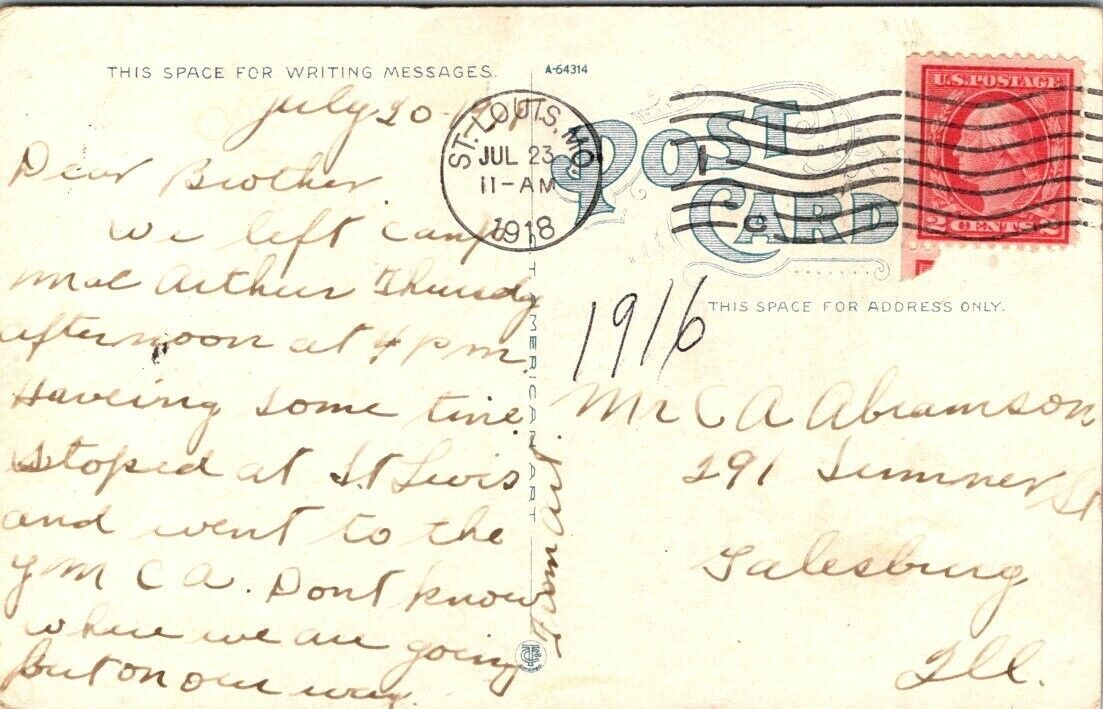 THIS SPACE FOR WRITING MESSAGES.
A-64314
July 20
Dear Brother
we left camp
Mac Arthur Thursdy
afternoon at 4 pm.
Haveing some time
stoped at St Lewis
and went to the
YMCA. Dont know
where we are going
but on our way.
From Art
ST. LOUIS, MO.
JUL 23
11-AM
1918
POST
CARD
U.S. POSTAGE
2 CENTS 2
1916
THIS SPACE FOR ADDRESS ONLY.
Mr C A Abramson
291 Sumner St
Galesburg
Ill.